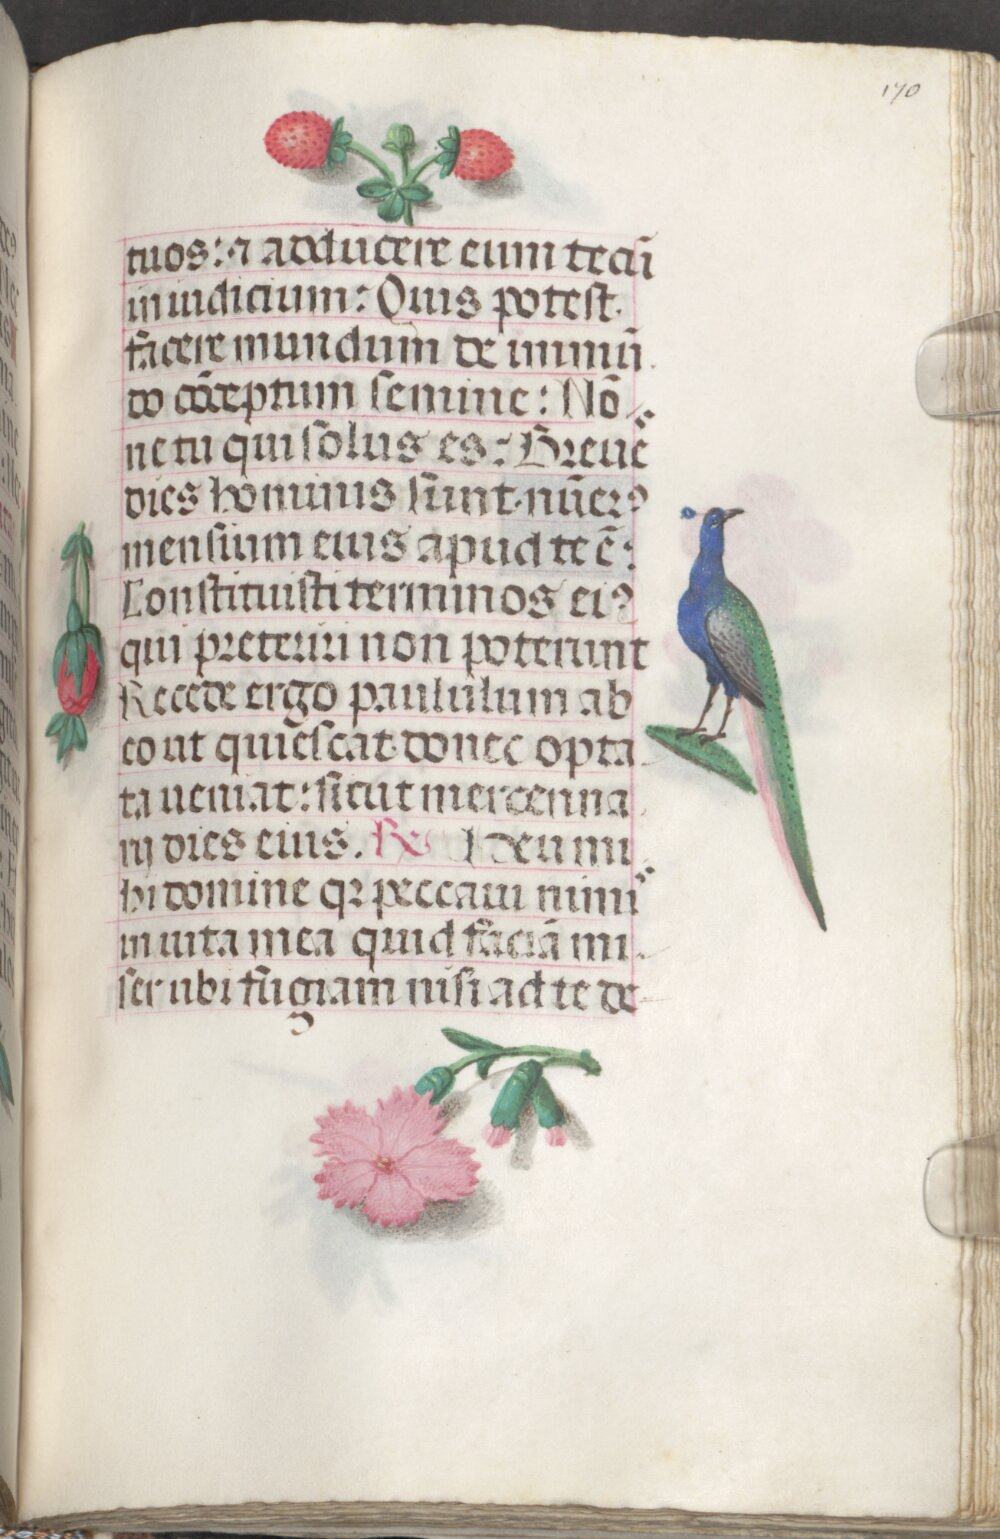 170
tuos: ⁊ adducere eum tecū
in iudicium: Quis potest
facere mundum de inmū
do cōceptum semine: Nō
ne tu qui solus es: Breue
dies hominis sunt. nūerꝰ
mensium eius apud te ē:
Constituisti terminos eiꝰ
qui preteriri non poterunt
Recede ergo paululum ab
eo ut quiescat donec opta
ta ueniat: sicut mercenna
rij dies eius. R̶ deu mi
hi domine qꝛ peccaui nimi
in uita mea quid faciā mi
ser ubi fugiam nisi ad te de